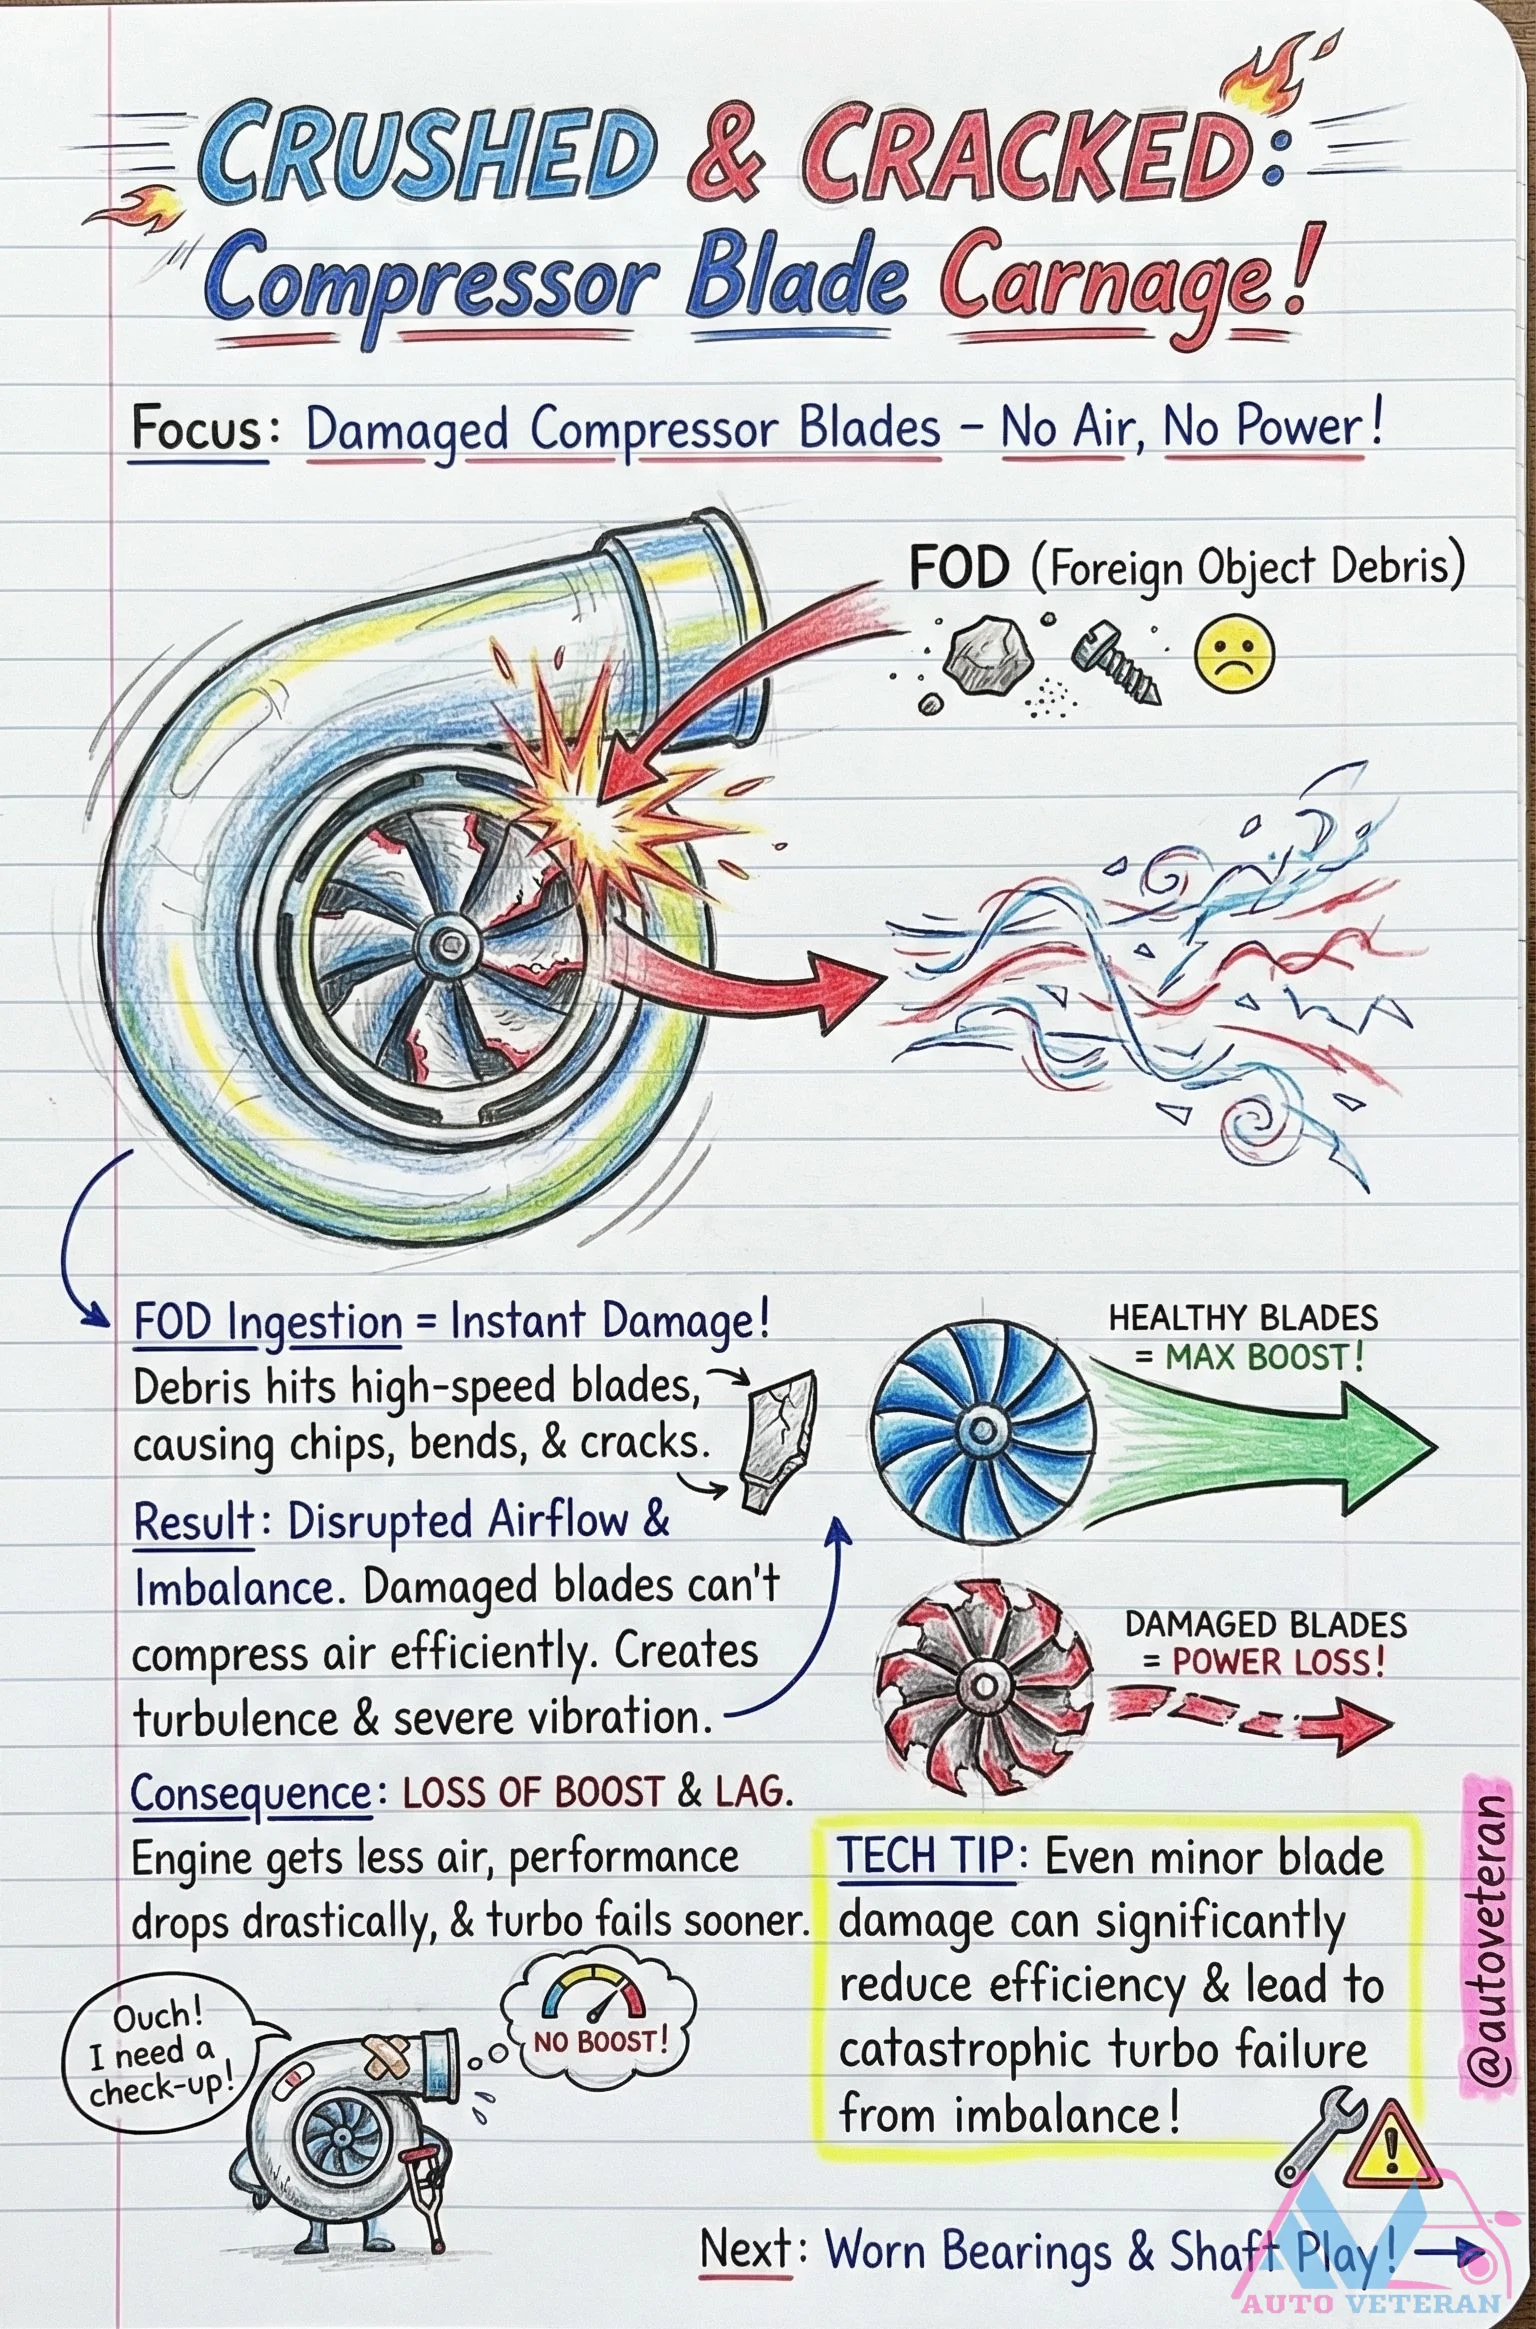 CRUSHED & CRACKED:
Compressor Blade Carnage!
Focus: Damaged Compressor Blades – No Air, No Power!
FOD (Foreign Object Debris)
FOD Ingestion = Instant Damage!
Debris hits high-speed blades,
causing chips, bends, & cracks.
Result: Disrupted Airflow &
Imbalance. Damaged blades can't
compress air efficiently. Creates
turbulence & severe vibration.
HEALTHY BLADES
= MAX BOOST!
DAMAGED BLADES
= POWER LOSS!
Consequence: LOSS OF BOOST & LAG.
Engine gets less air, performance
drops drastically, & turbo fails sooner.
TECH TIP: Even minor blade
damage can significantly
reduce efficiency & lead to
catastrophic turbo failure
from imbalance!
@autoveteran
Ouch!
I need a
check-up!
NO BOOST!
Next: Worn Bearings & Shaft Play!
AUTO VETERAN